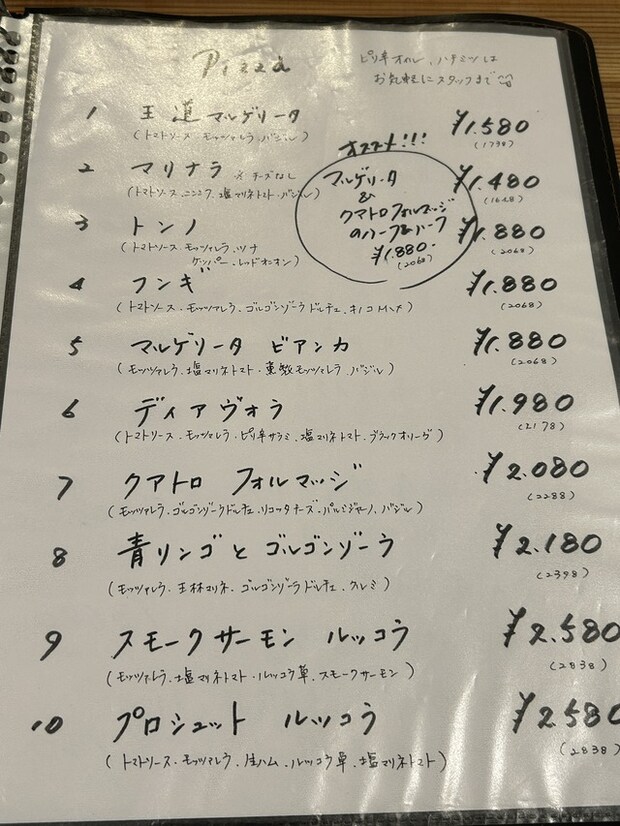 Pizza
ピリ辛オイル、ハチミツは
お気軽にスタッフまで
1 王道マルゲリータ ¥1.580
(トマトソース・モッツァレラ・バジル) (1738)
オススメ!!!
マルゲリータ
&
クアトロフォルマッジ
のハーフ&ハーフ
¥1.880-
(2068)
2 マリナラ ※チーズなし ¥1.480
(トマトソース・ニンニク・塩マリネトマト・バジル) (1628)
3 トンノ ¥1.880
(トマトソース・モッツァレラ・ツナ (2068)
ケッパー・レッドオニオン)
4 フンギ ¥1.880
(トマトソース・モッツァレラ・ゴルゴンゾーラドルチェ・キノコMIX) (2068)
5 マルゲリータ ビアンカ ¥1.880
(モッツァレラ・塩マリネトマト・燻製モッツァレラ・バジル) (2068)
6 ディアヴォラ ¥1.980
(トマトソース・モッツァレラ・ピリ辛サラミ・塩マリネトマト・ブラックオリーヴ) (2178)
7 クアトロ フォルマッジ ¥2.080
(モッツァレラ・ゴルゴンゾーラドルチェ・リコッタチーズ・パルミジャーノ・バジル) (2288)
8 青リンゴとゴルゴンゾーラ ¥2.180
(モッツァレラ・王林マリネ・ゴルゴンゾーラドルチェ・クルミ) (2398)
9 スモークサーモン ルッコラ ¥2.580
(モッツァレラ・塩マリネトマト・ルッコラ草・スモークサーモン) (2838)
10 プロシュット ルッコラ ¥2.580
(トマトソース・モッツァレラ・生ハム・ルッコラ草・塩マリネトマト) (2838)